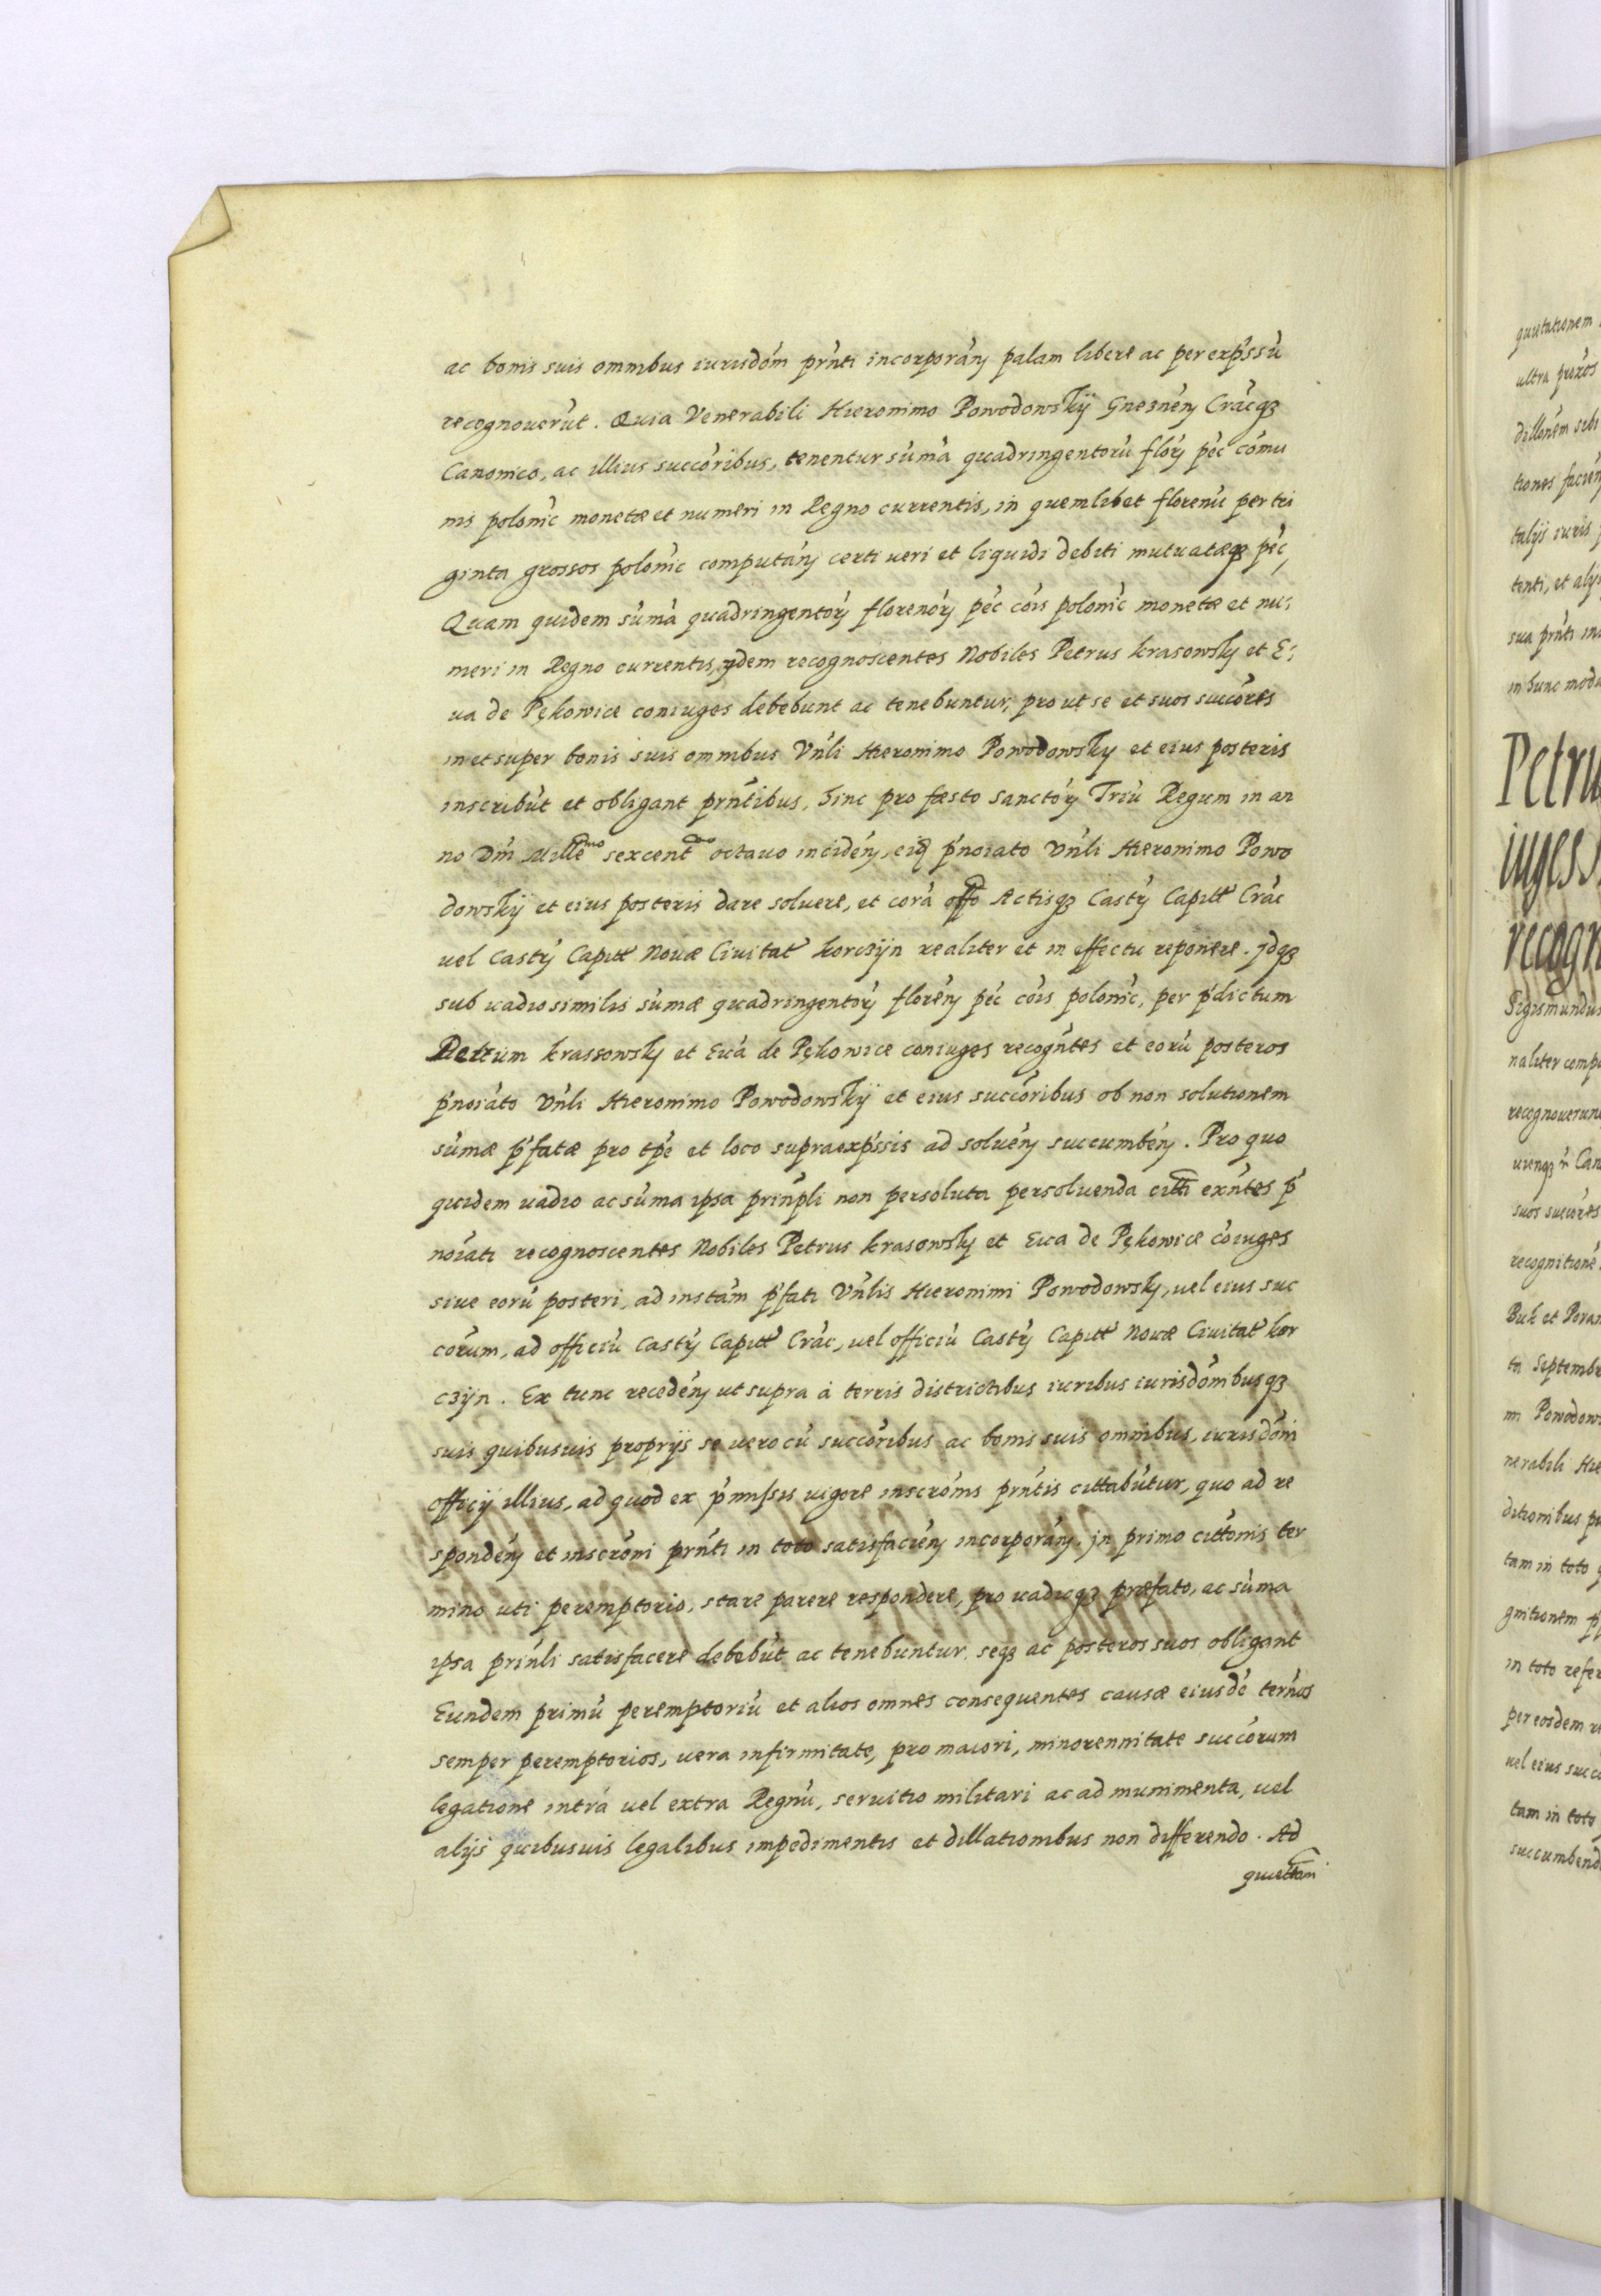 ac bonis suis omnibus iurisdóm prńti incorporáń palam libere ac per expŕssú
recognoverút. Quia Venerabili Hieronimo Powodowskÿ Gnezneń Crácq3
Canonico, ac illius succóribus, tenentur súmá quadringentorú flóŕ péc cómu
nis polonic monetæ et numeri in Regno currentis, in quemlibet florenú per tri
ginta grossos polonic computáń certi ueri et liquidi debiti mutuatæq3 péc,
Quam quidem súmá quadringentóŕ florenóŕ péc cóis polonic monetæ et nu:
meri in Regno currentis, ÿdem recognoscentes Nobiles Petrus Krasowsky et E:
ua de Pękowice coniuges debebunt ac tenebuntur, prout se et suos succóres
in et super bonis suis omnibus Vńli Hieronimo Powodowsky et eius posteris
inscribút et obligant prńtibus, hinc pro fæsto sanctóŕ Triú Regum in an
no Dńi Mille͞mo sexcent͞mo octauo incideń, eid p̓noiato Vńli Hieronimo Powo
dowskÿ et eius posteris dare soluere, et corá offo Actisq3 Castŕ Capitt Crác
uel Castŕ Capitt Nouæ Ciuitat Korczÿn realiter et in effectu reponere. Jdq3
sub uadio similis súmæ quadringentóŕ floreń péc cóis polonic, per p̓dictum
Petrum Krassowsky et Euá de Pękowice coniuges recogńtes et eorú posteros
p̓noiáto Vńli Hieronimo Powodowskÿ et eius succóribus ob non solutionem
súmæ p̓fatæ pro tṕe et loco supraexpŕssis ad solueń succumbeń. Pro quo
quidem uadio ac súma ipsa prinṕli non persoluta persoluenda citti exńtes p̓
noiati recognoscentes Nobiles Petrus Krasowsky et Eua de Pękowice cóiuges
siue eorú posteri, ad instám p̓fati Vńlis Hieronimi Powodowsky, uel eius suc
córum, ad officiú Castŕ Capitt Crác, uel officiú Castŕ Capitt Nouæ Ciuitat Kor
czÿn. Ex tunc recedeń ut supra á terris districtibus iuribus iurisdómibusq3
suis quibusuis proprÿs se uero cú succóribus ac bonis suis omnibus, iurisdóni
officÿ illius, ad quod ex p̓missis uigore inscrónis prńtis cittabútur, quo ad re
spondeń et inscróni prńti in toto satisfacień incorporáń. jn primo cittónis ter
mino uti peremptorio, stare parere respondere, pro uadioq3 præfato, ac súma
ipsa prińli satisfacere debebút ac tenebuntur. seq3 ac posteros suos obligant
Eundem primú peremptoriú et alios omnes consequentes causæ eiusdé terńos
semper peremptorios, uera infirmitate, pro maiori, minorennitate succórum
legatione intrá uel extra Regnú, seruitio militari ac ad munimenta, uel
alÿs quibusuis legalibus impedimentis et dillationibus non differendo. Ad
quiettam
quitationem
ultra
dillóném sibi
tiones facień
talÿs iuris
tenti, et alÿs
sua prńti in
in hunc modú
Petru
iuges s
recogn
Sigismundus
naliter comp
recognouerunt
Can
suos succóres
recognitioné
Buk et
ta Septemb
mi Powodow
nerabili Hie
ditionibus
tam in toto
gnitionem
in toto refer
per eosdem
uel eius succ
tam in toto
succumbend